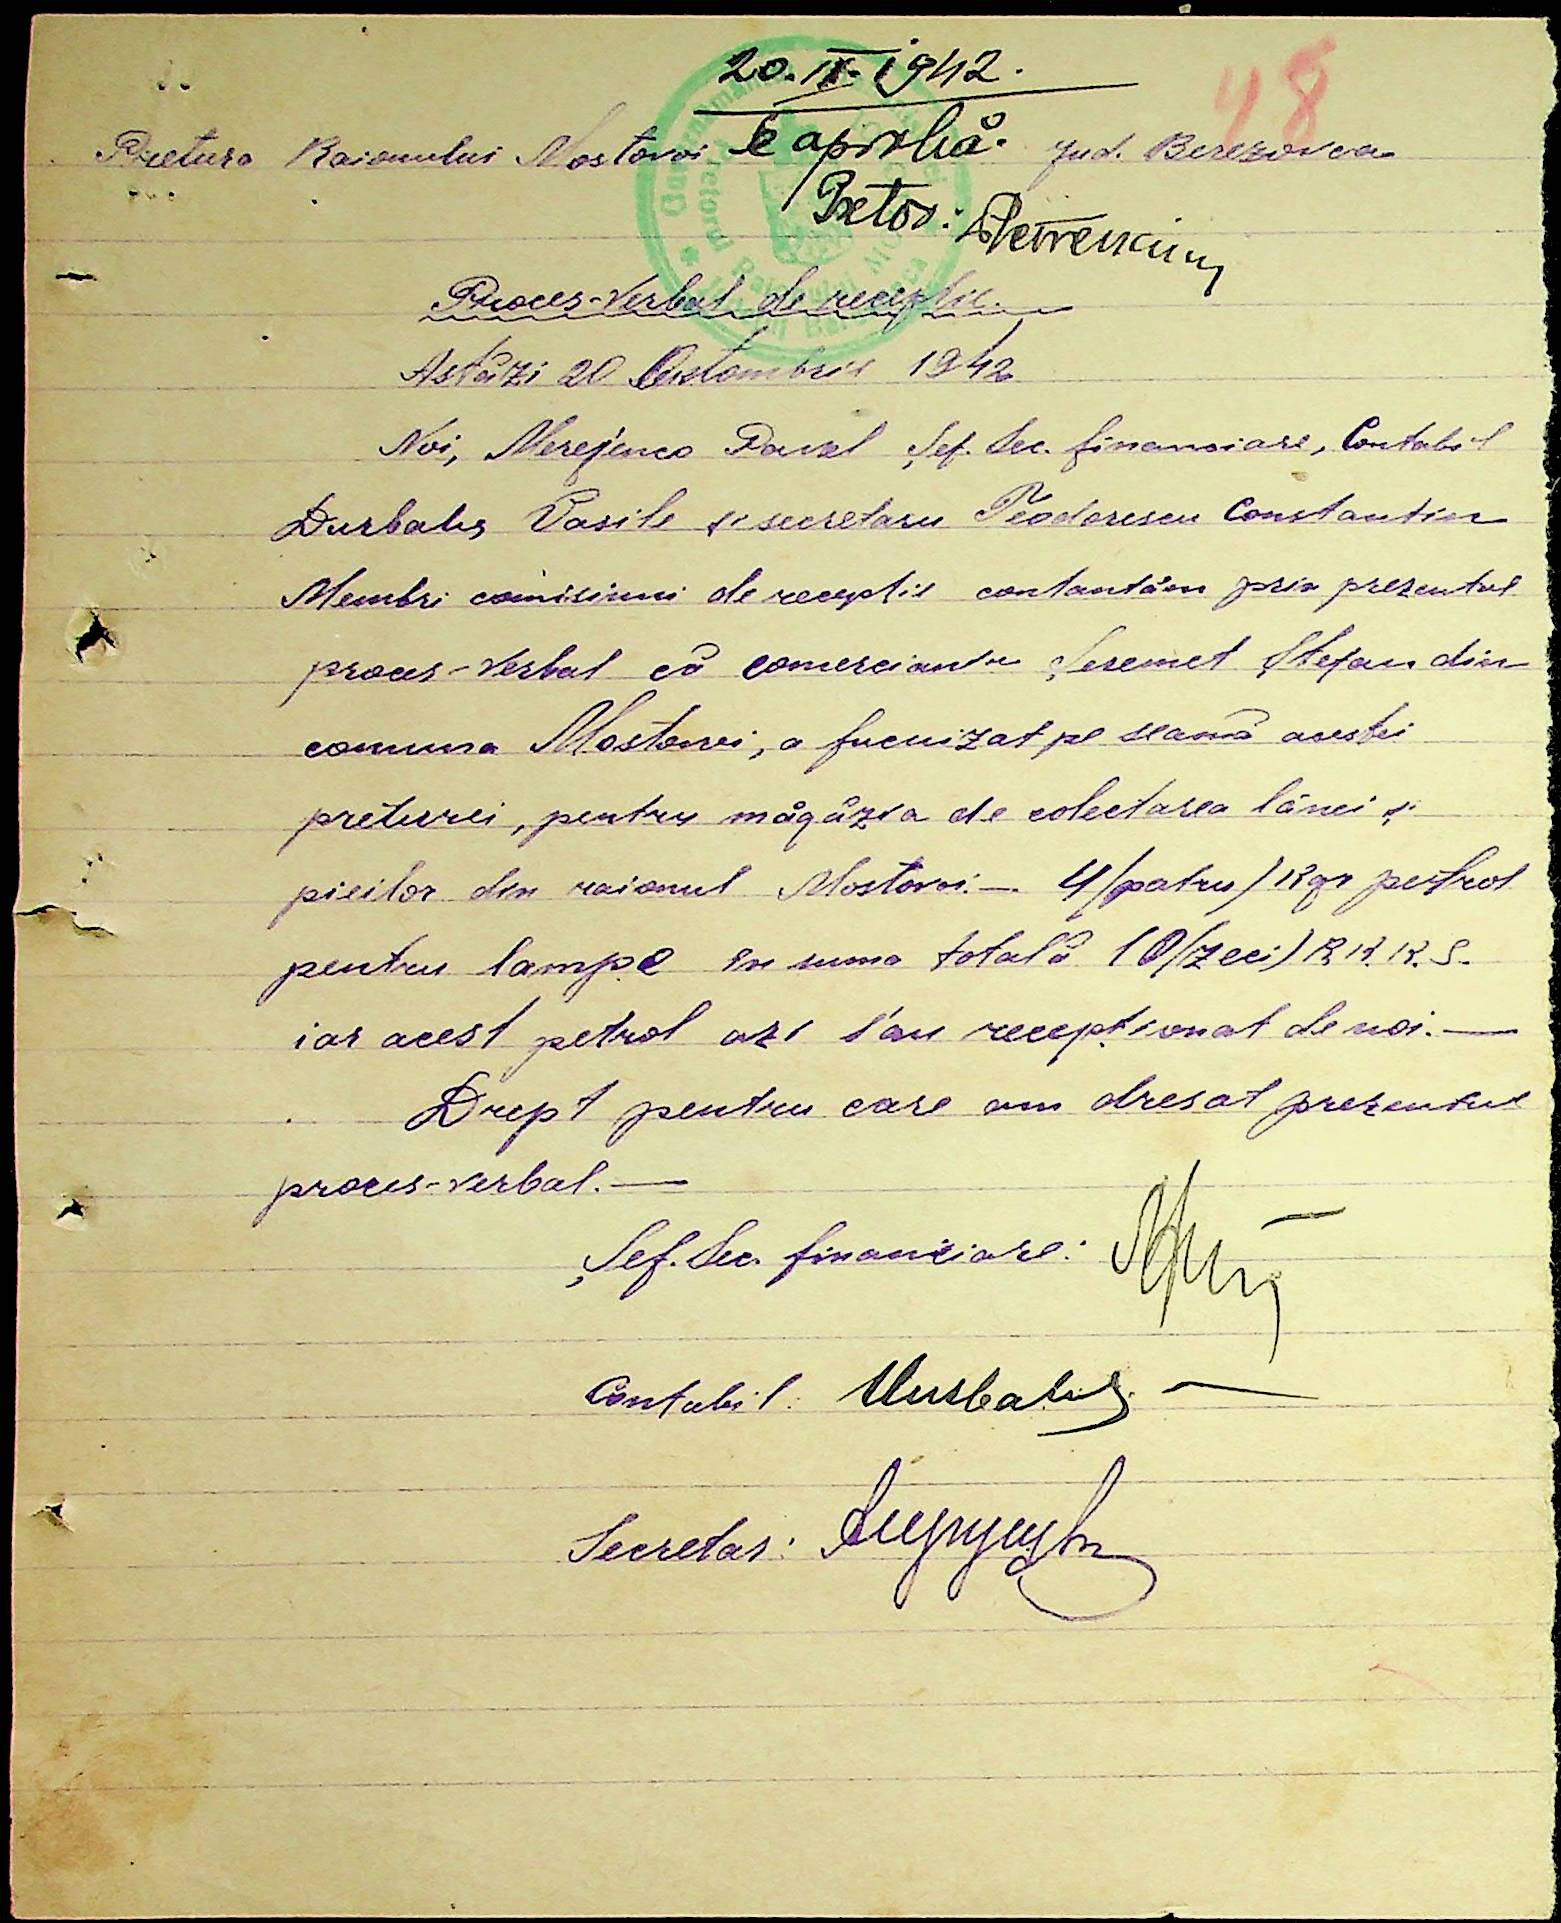 20.IX.1942.
48
Se aprobă.
Pretura Raionului Mostovoi jud. Berezovca
Pretor:
Proces-Verbal de recepție.
Astăzi 20 Octombrie 1942
Noi, Merejenco Pavel Șef. Sec. financiare, Contabil
Durbală Vasile și secretaru Teodorescu Constantin
Membri comisiuni de recepție contantăm prin prezentul
proces-verbal că comerciantu Șeremet Ștefan din
comuna Mostovoi, a furnizat pe seamă acestei
preturei, pentru măgăzia de colectarea lânei și
pieilor din raionul Mostovoi.— 4/patru/Kgr petrol
pentru lampe în suma totală 10/zeci) R.K.K.S.
iar acest petrol azi s'au recepționat de noi.—
Drept pentru care am dresat prezentul
proces-verbal.—
Șef. Sec. financiare:
Contabil:
Secretar: